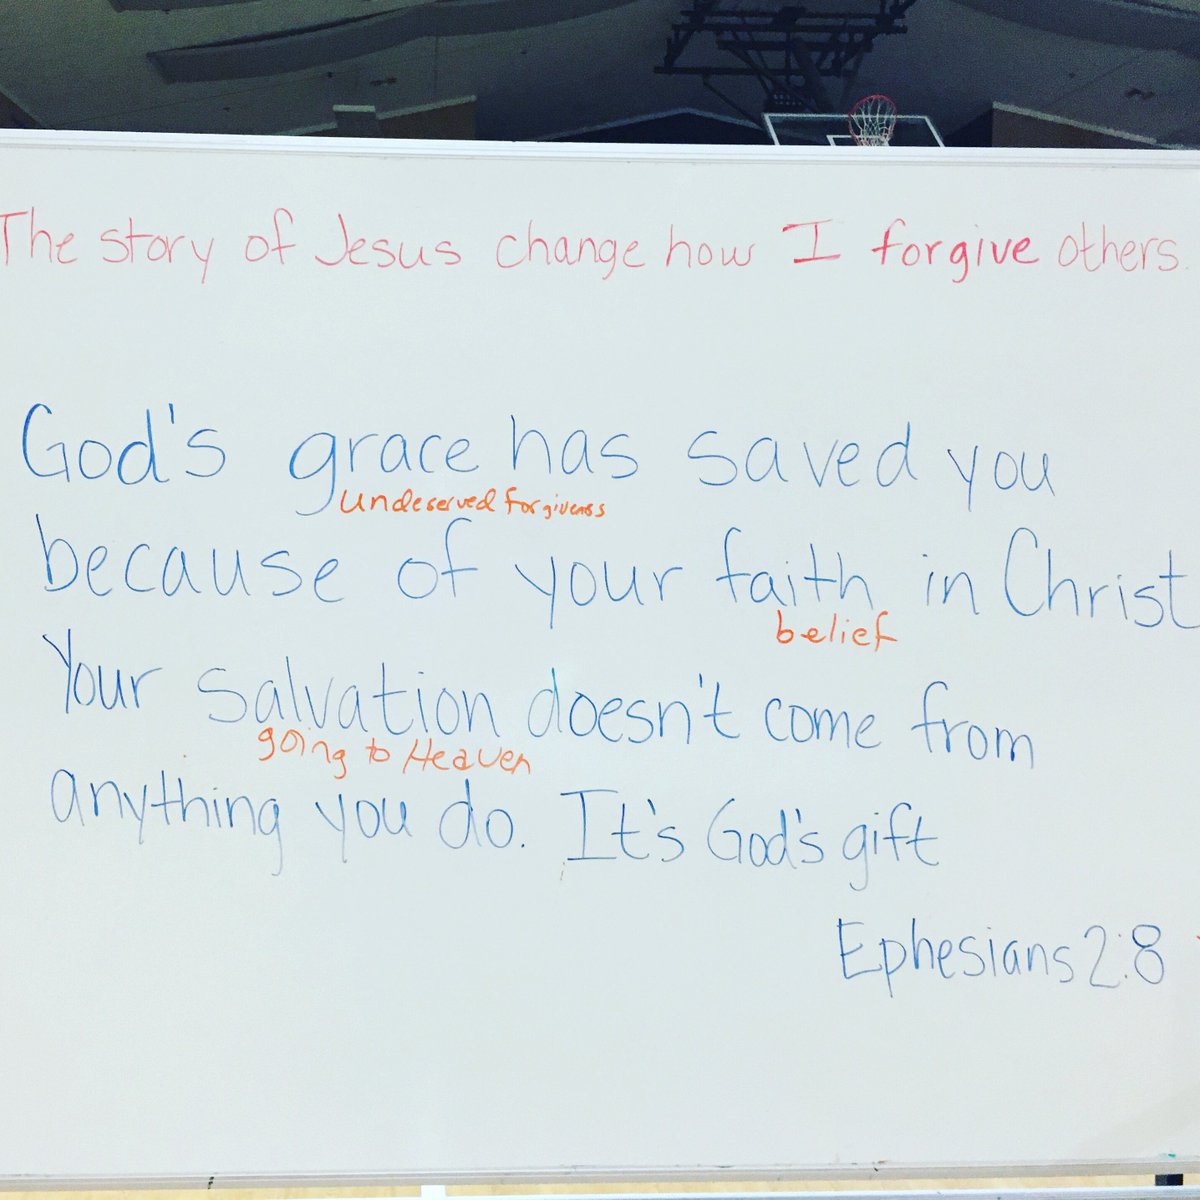 The story of Jesus change how I forgive others.
God's grace has saved you
undeserved forgivenss
because of your faith in Christ
belief
Your salvation doesn't come from
going to Heaven
anything you do. It's God's gift
Ephesians 2:8